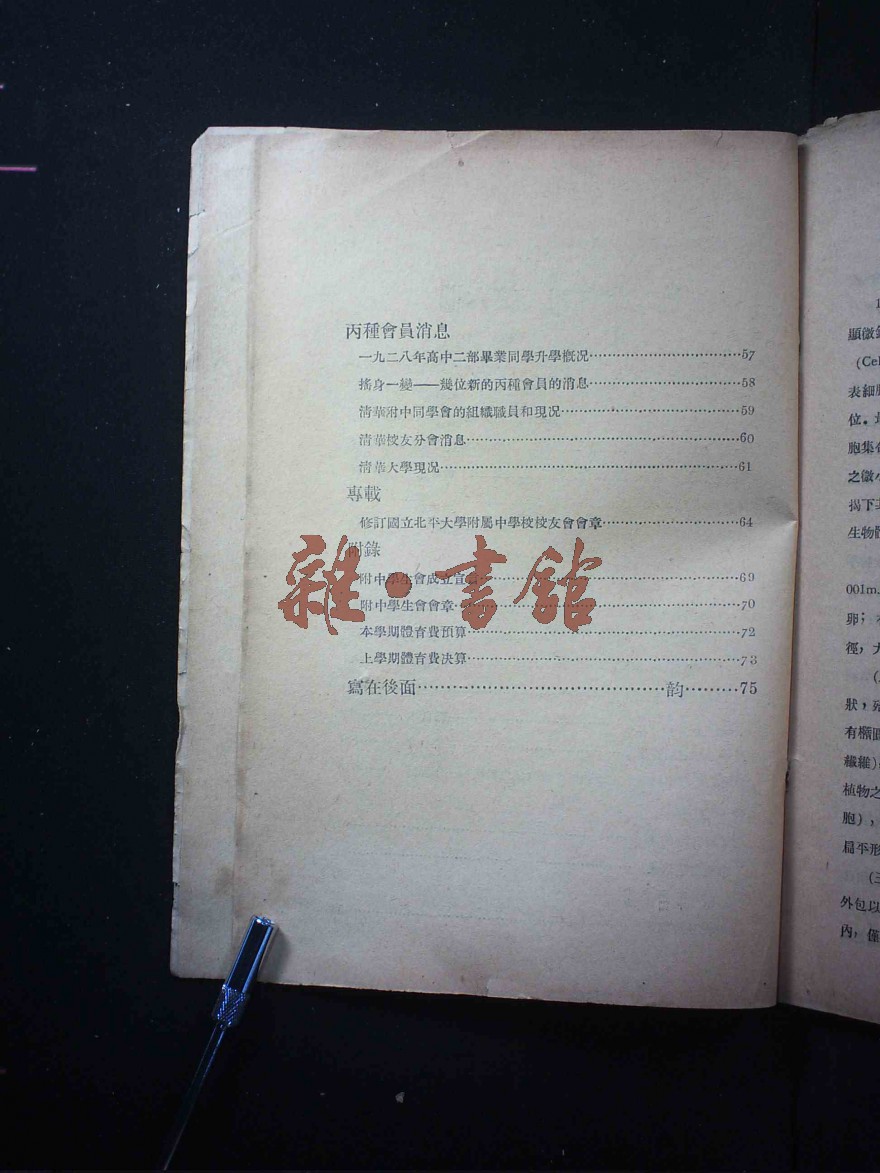 丙種會員消息
一九二八年高中二部畢業同學升學概况……57
搖身一變——幾位新的丙種會員的消息……58
清華附中同學會的組織職員和現况……59
清華校友分會消息……60
清華大學現况……61
專載
修訂國立北平大學附屬中學校校友會會章……64
附錄
附中學生會成立宣言……69
附中學生會會章……70
本學期體育費預算……72
上學期體育費决算……73
寫在後面……韵……75
雜·書館
顯微
(Cel
表細胞
位。
胞集合
之微小
揭下
生物體
001m.
卵；
徑，大
狀，
有橢圓
纖維)
植物之
胞)，
扁平形
(三
外包以
內，僅